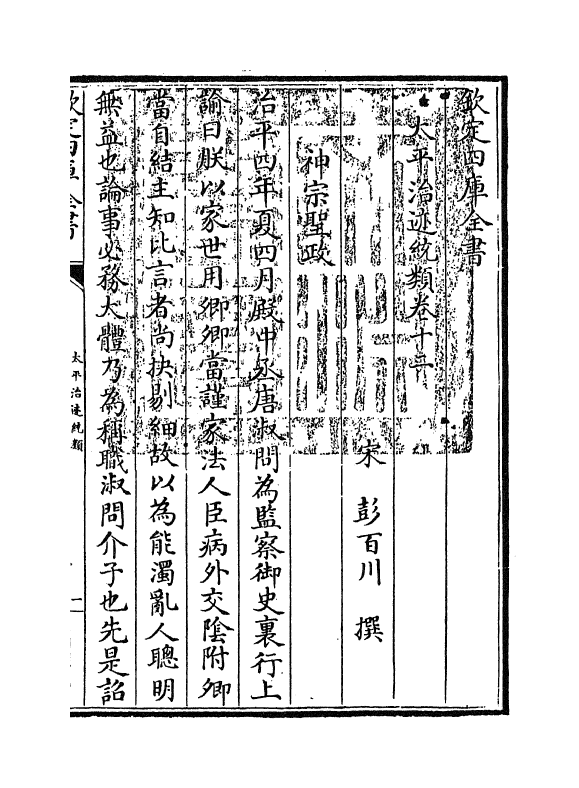 欽定四庫全書
太平治迹統類卷十二
宋 彭百川 撰
神宗聖政
治平四年夏四月殿中丞唐淑問為監察御史裏行上
諭曰朕以家世用卿卿當謹家法人臣病外交陰附卿
當自結主知比言者尚抉剔細故以為能濁亂人聰明
無益也論事必務大體乃為稱職淑問介子也先是詔
欽定四庫全書
太平治迹統類